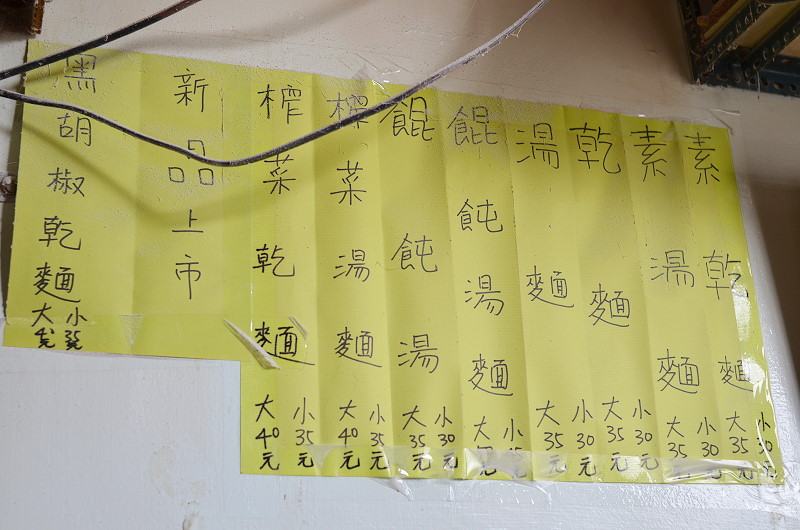 素乾麵
小30元
大35元
素湯麵
小30元
大35元
乾麵
小30元
大35元
湯麵
小30元
大35元
餛飩湯麵
小
大
餛飩湯
小30元
大35元
榨菜湯麵
小35元
大40元
榨菜乾麵
小35元
大40元
新品上市
黑胡椒乾麵
小35元
大